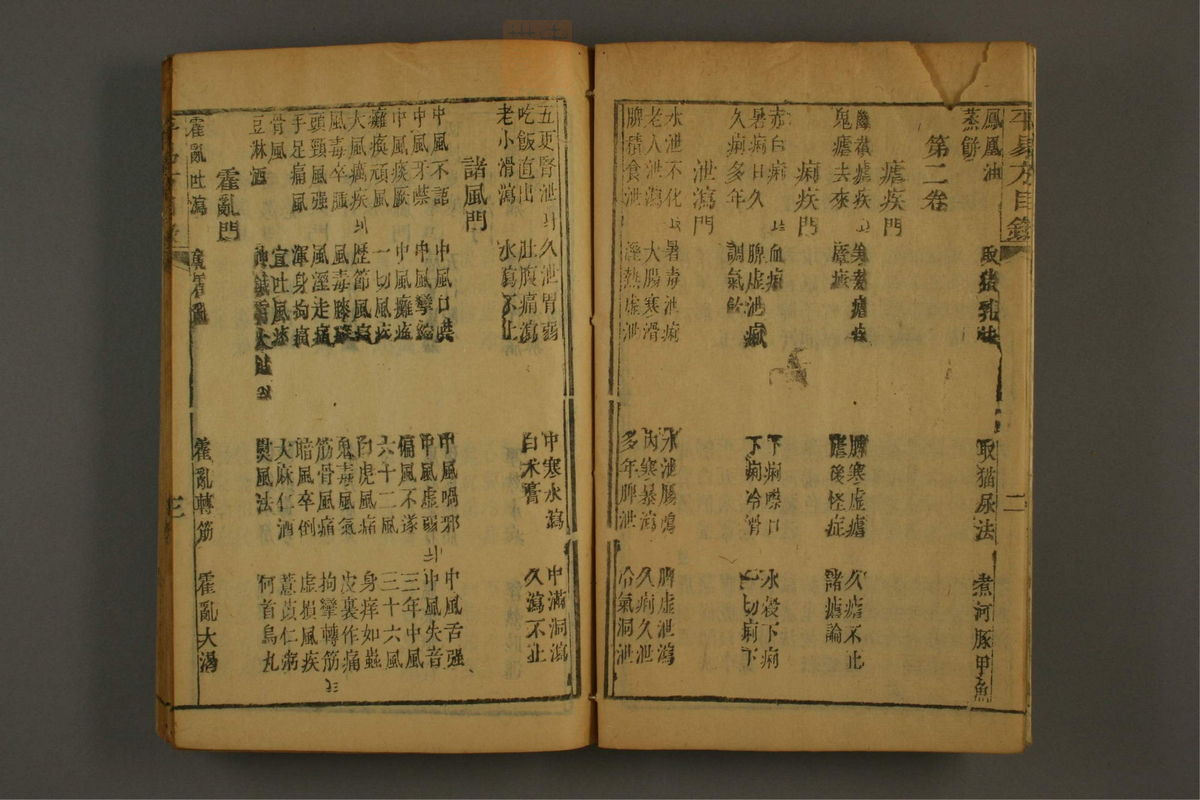 平易方目錄 二
鳳凰油 取猪乳法 取猫尿法 煮河豚甲魚
蒸餅
第二卷
瘧疾門
瘧疾 脾寒虛瘧 久瘧不止
鬼瘧去來 瘴瘧 瘧後怪症 諸瘧論
痢疾門
赤白痢 血痢 下痢噤口 水穀下痢
暑痢日久 脾虛泄痢 下痢冷滑 一切痢下
久痢多年 調氣飲
泄瀉門
水泄不化 暑毒泄痢 水泄腸鳴 脾虛泄瀉
老人泄瀉 大腸寒滑 內寒暴瀉 久痢久泄
脾積食泄 溼熱虛泄 多年脾泄 冷氣洞泄
五更腎泄 久泄胃弱 中寒水瀉 中滿洞瀉
吃飯直出 肚腹痛瀉 白朮膏 久瀉不止
老小滑瀉 水瀉不止
諸風門
中風不語 中風口噤 中風喎邪 中風舌强
中風牙禁 中風攣縮 中風虛弱 中風失音
中風痰厥 中風癱瘓 偏風不遂 三年中風
癱瘓頑風 一切風疾 六十二風 三十六風
大風癘疾 歷節風痛 白虎風痛 身痒如蟲
風毒卒腫 風毒膝痛 鬼毒風氣 皮裏作痛
頭頸風强 風溼走痛 筋骨風痛 拘攣轉筋
手足痛風 渾身拘痛 暗風卒倒 虛損風疾
骨風 宜吐風痰 大麻仁酒 薏苡仁粥
豆淋酒 熨風法 何首烏丸
霍亂門
霍亂吐瀉 霍亂轉筋 霍亂大渴
三